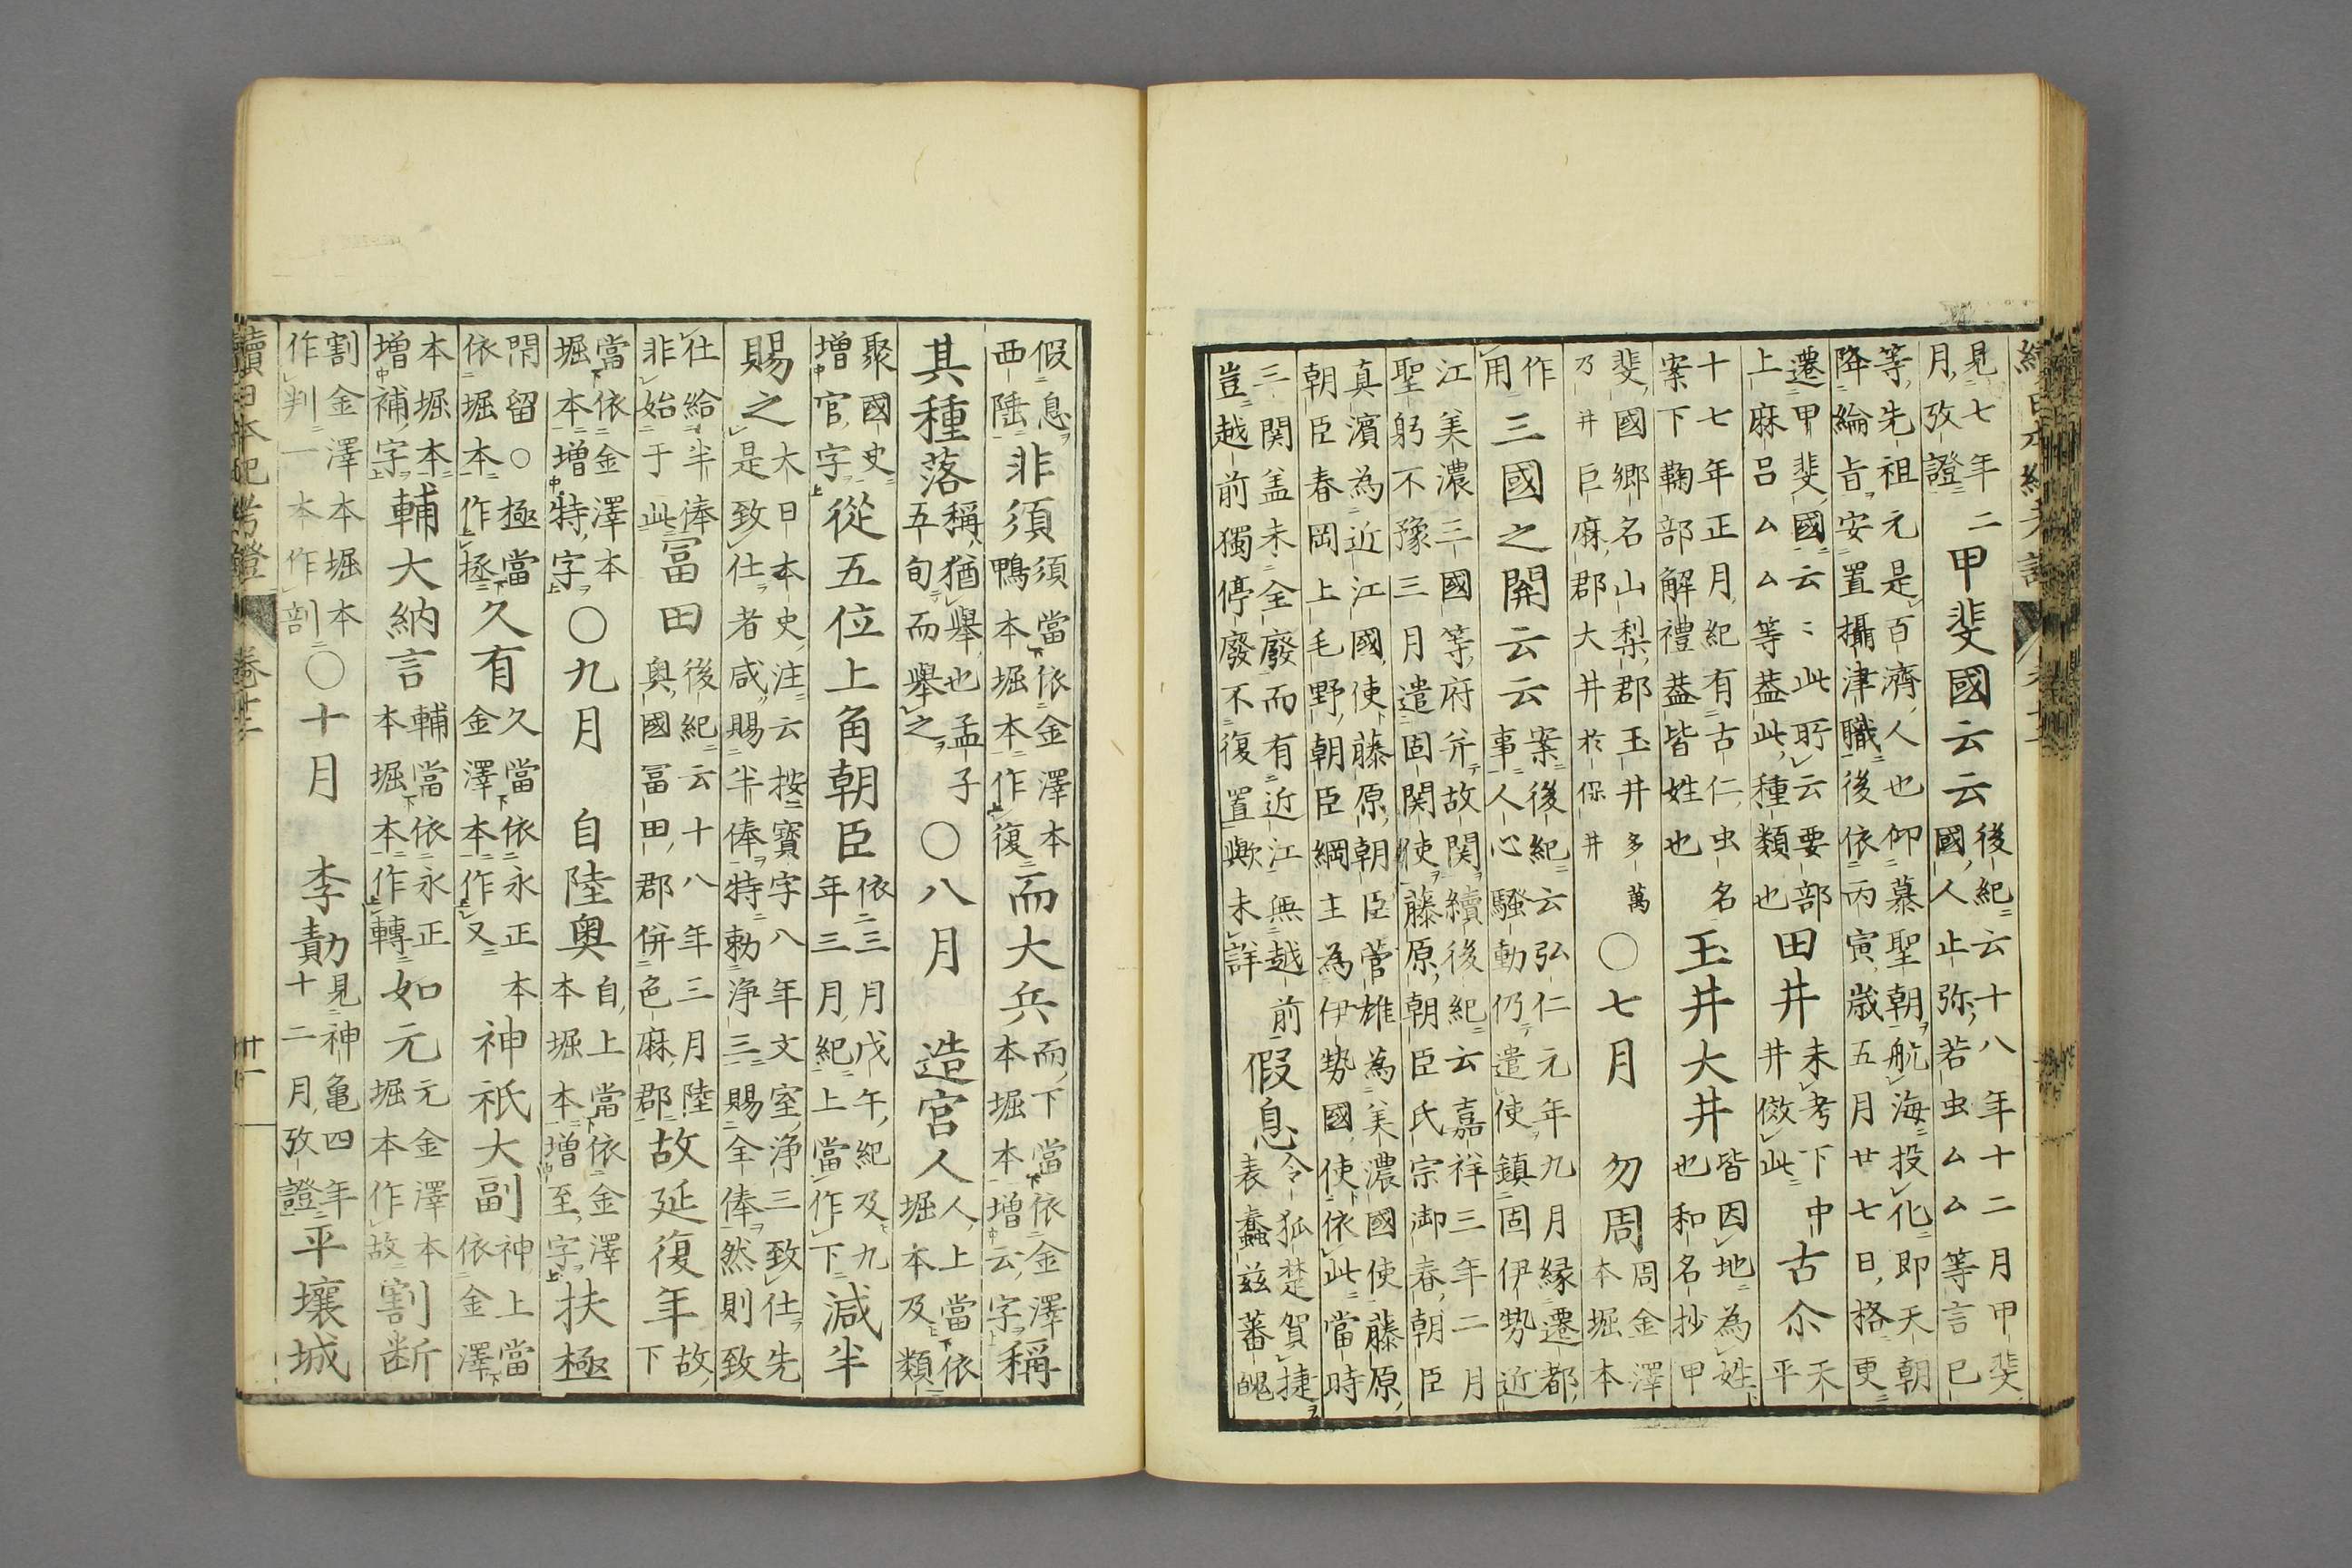 續日本紀考證
見七年二月攷證甲斐國云云後紀云十八年十二月甲斐國人止弥若虫ムム等言已
等先祖元是百濟人也仰慕聖朝航海投化即天朝降綸旨安置攝津職後依丙寅歲五月廿七日格更
遷甲斐國云〻此所云要部上麻呂ムム等蓋此種類也田井未考下中井倣此古尒天平
十七年正月紀有古仁虫名案下鞠部解禮蓋皆姓也玉井大井皆因地為姓也和名抄甲
斐國郷名山梨郡玉井多萬乃井巨麻郡大井於保井○七月　勿周周金澤本堀本
作用三國之關云云案後紀云弘仁元年九月縁遷都事人心騷動仍遣使鎮固伊勢近
江美濃三國等府并故関續後紀云嘉祥三年二月聖躬不豫三月遣固関使藤原朝臣氏宗御春朝臣
真濱為近江國使藤原朝臣菅雄為美濃國使藤原朝臣春岡上毛野朝臣綱主為伊勢國使依此當時
三関盖未全廢而有近江無越前豈越前獨停廢不復置歟未詳假息令狐楚賀捷表蠢茲蕃醜
假息西陲非須須當依金澤本鴨本堀本作復而大兵而下當依金澤本堀本增云字稱
其種落稱猶舉也孟子五旬而舉之○八月　造宮人人上當依堀本及類
聚國史增官字從五位上角朝臣依三月戊午紀及九年三月紀上當作下減半
賜之大日本史注云按寶字八年文室浄三致仕先是致仕者咸賜半俸特勅浄三賜全俸然則致
仕給半俸非始于此冨田後紀云十八年三月陸奥國冨田郡併色麻郡故延復年故下
當依金澤本堀本增特字○九月　自陸奥自上當依金澤本堀本增至字扶極
閇留○極當依堀本作拯久有久當依永正本金澤本作又神祇大副神上當依金澤
本堀本增補字輔大納言輔當依永正本堀本作轉如元元金澤本堀本作故割断
割金澤本堀本作判一本作剖○十月　李勣見神亀四年十二月攷證平壤城
續日本紀考證　卷十二　廿一